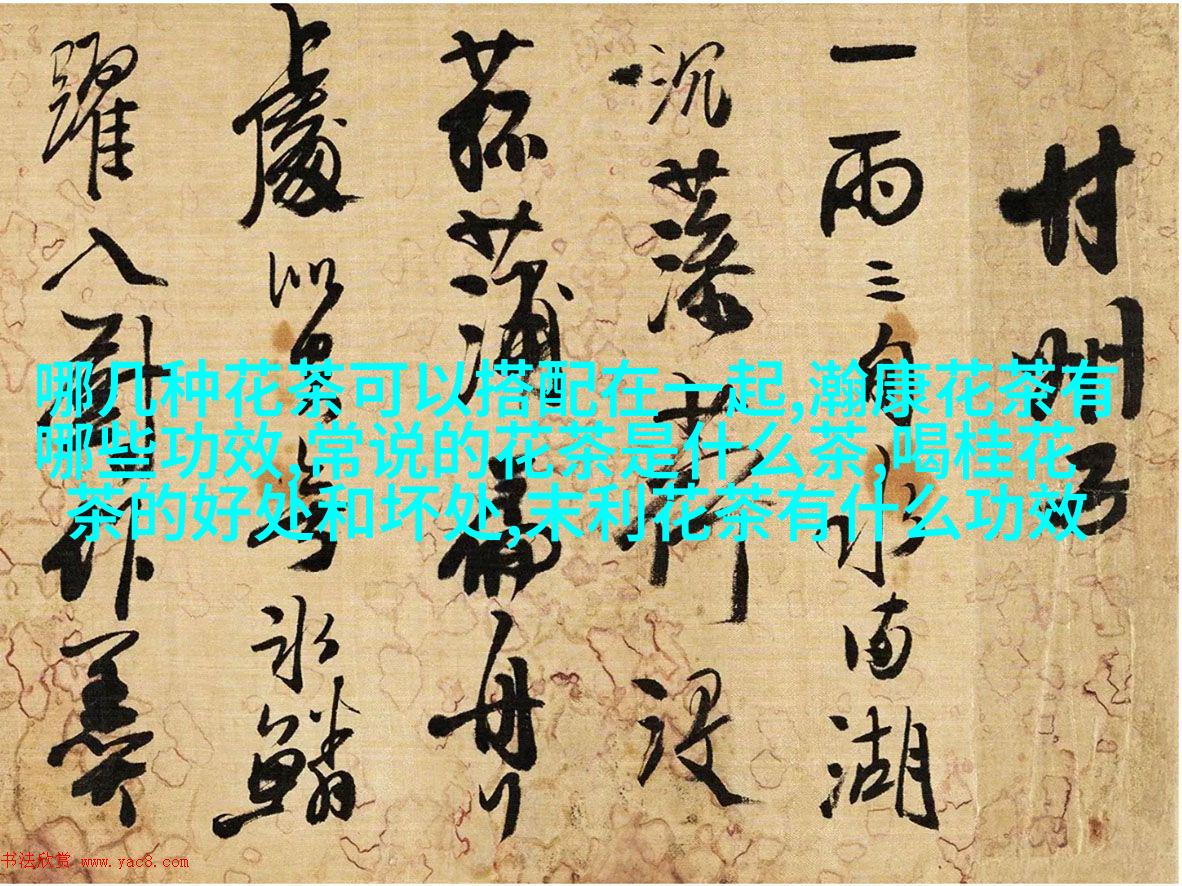 甘州子
一雨三水湖
沉藻荇没
菰蒲扁舟
上處冰鱗
躍入作羹
哪几种花茶可以搭配在一起,瀚康花茶有
哪些功效,常说的花茶是什么茶,喝桂花
茶的好处和坏处,末利花茶有什么功效
书法欣赏 www.yac8.com